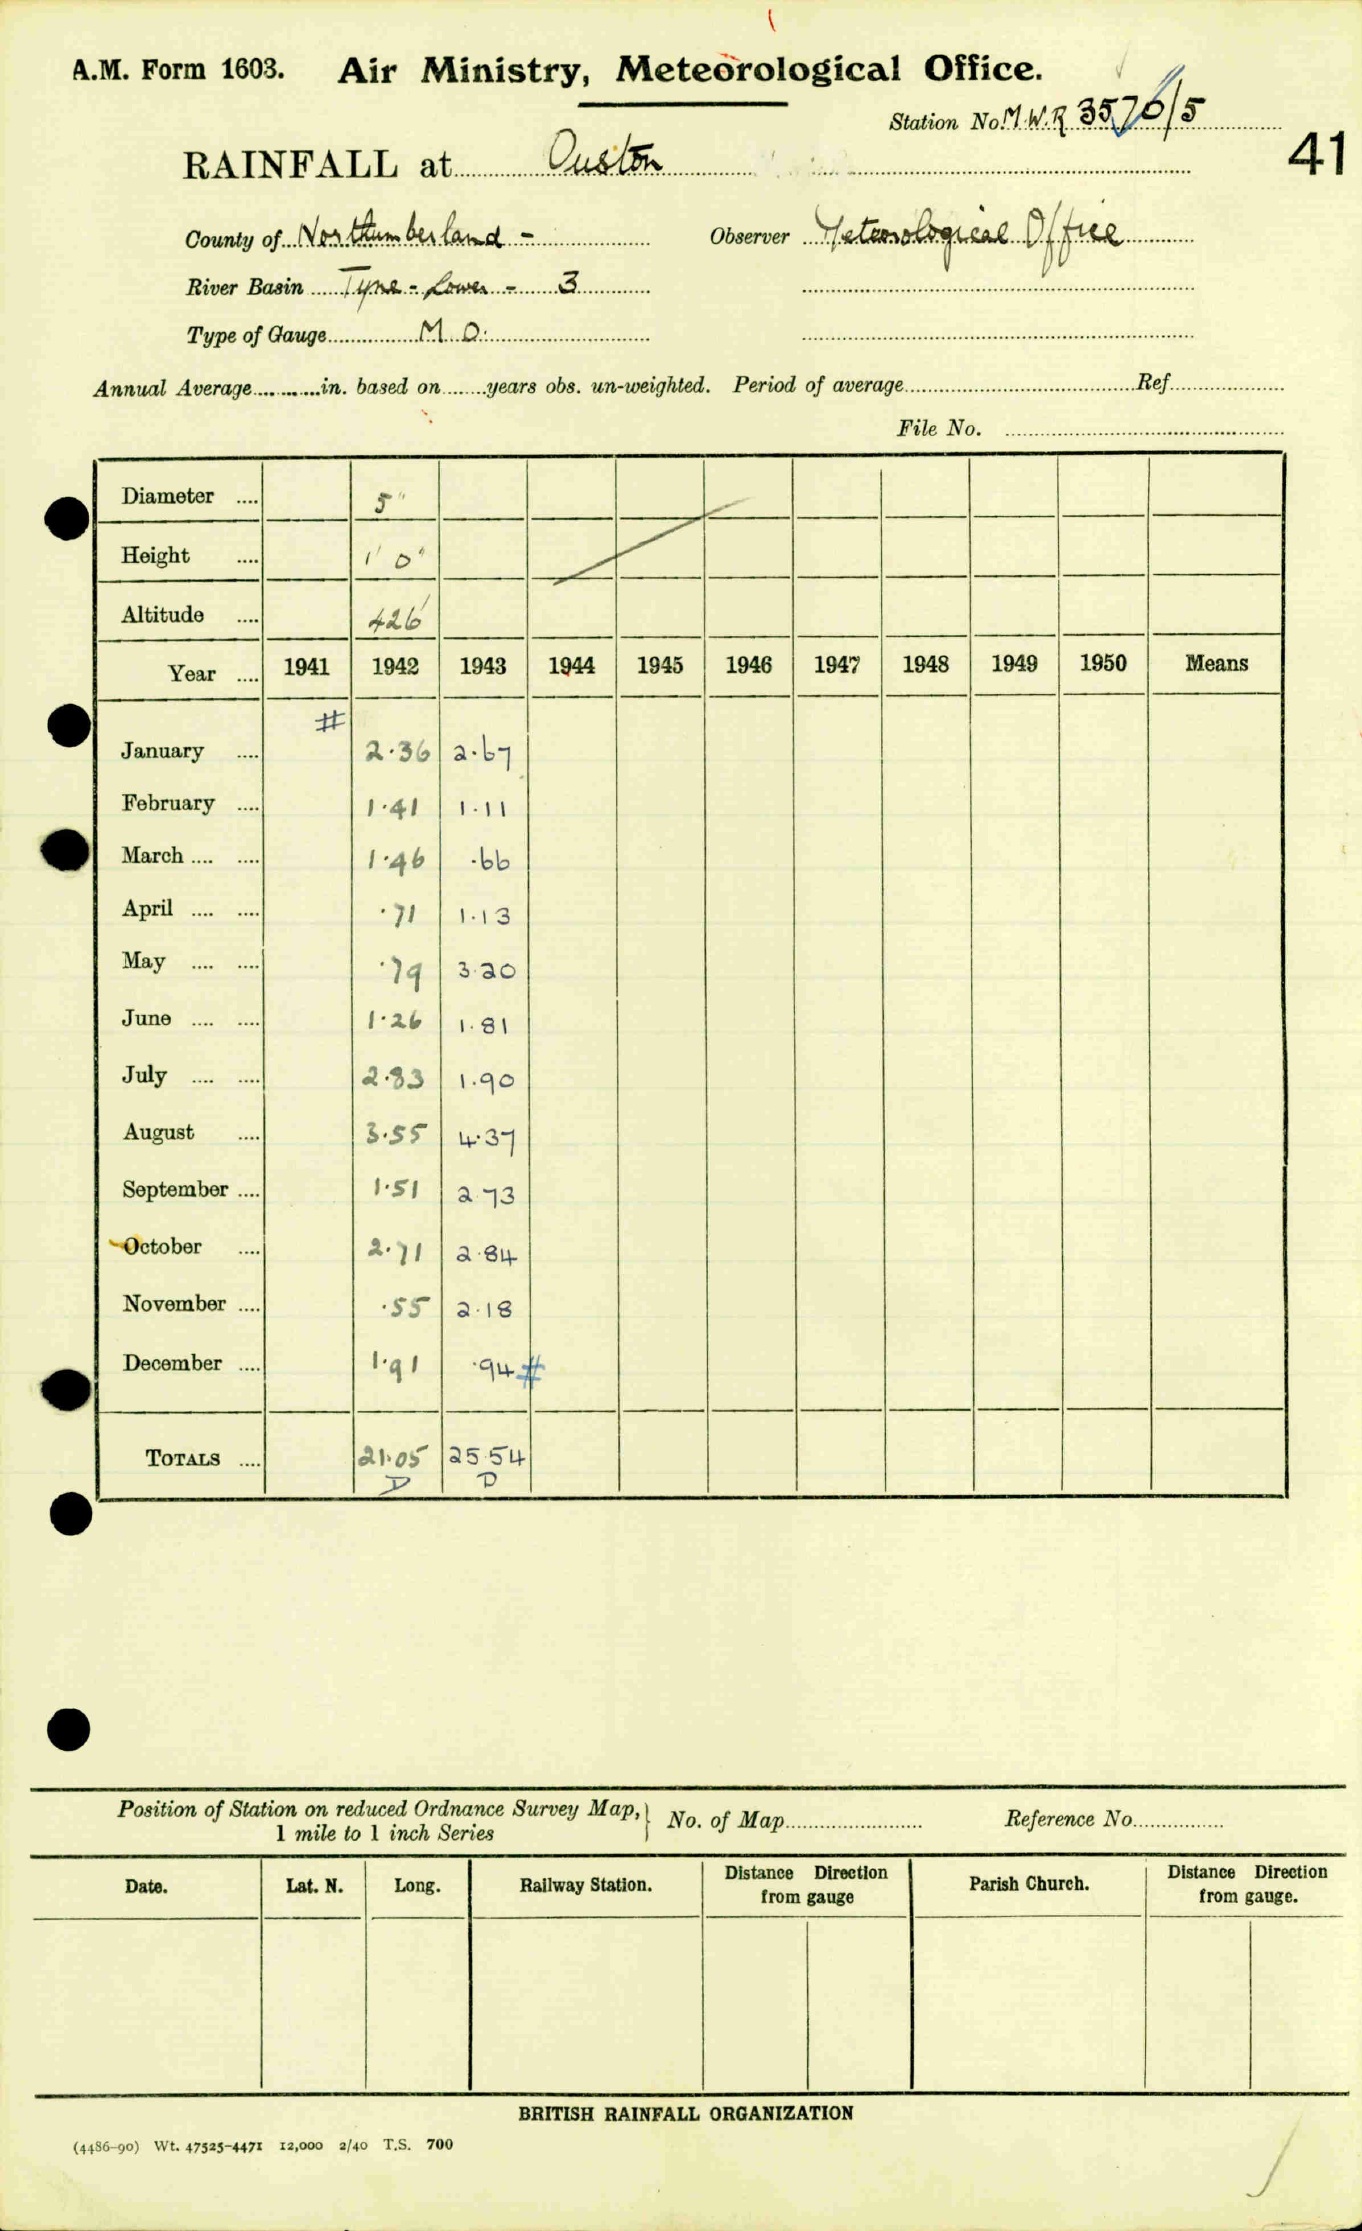 A.M. Form 1603. Air Ministry, Meteorological Office.
Station No. M.W.R 3570/5
41
RAINFALL at Ouston
County of Northumberland - Observer Meteorological Office
River Basin Tyne - Lower - 3
Type of Gauge M.O.
Annual Average in. based on years obs. un-weighted. Period of average Ref
File No.
Diameter .... 5"
Height .... 1' 0"
Altitude .... 426'
Year .... 1941 1942 1943 1944 1945 1946 1947 1948 1949 1950 Means
#
January .... 2.36 2.67
February .... 1.41 1.11
March .... .... 1.46 .66
April .... .... .71 1.13
May .... .... .79 3.20
June .... .... 1.26 1.81
July .... .... 2.83 1.90
August .... 3.55 4.37
September .... 1.51 2.73
October .... 2.71 2.84
November .... .55 2.18
December .... 1.91 .94 #
TOTALS .... 21.05 25.54
D D
Position of Station on reduced Ordnance Survey Map, } No. of Map Reference No.
1 mile to 1 inch Series
Date. Lat. N. Long. Railway Station. Distance Direction from gauge Parish Church. Distance Direction from gauge.
BRITISH RAINFALL ORGANIZATION
(4486-90) Wt. 47525-4471 12,000 2/40 T.S. 700